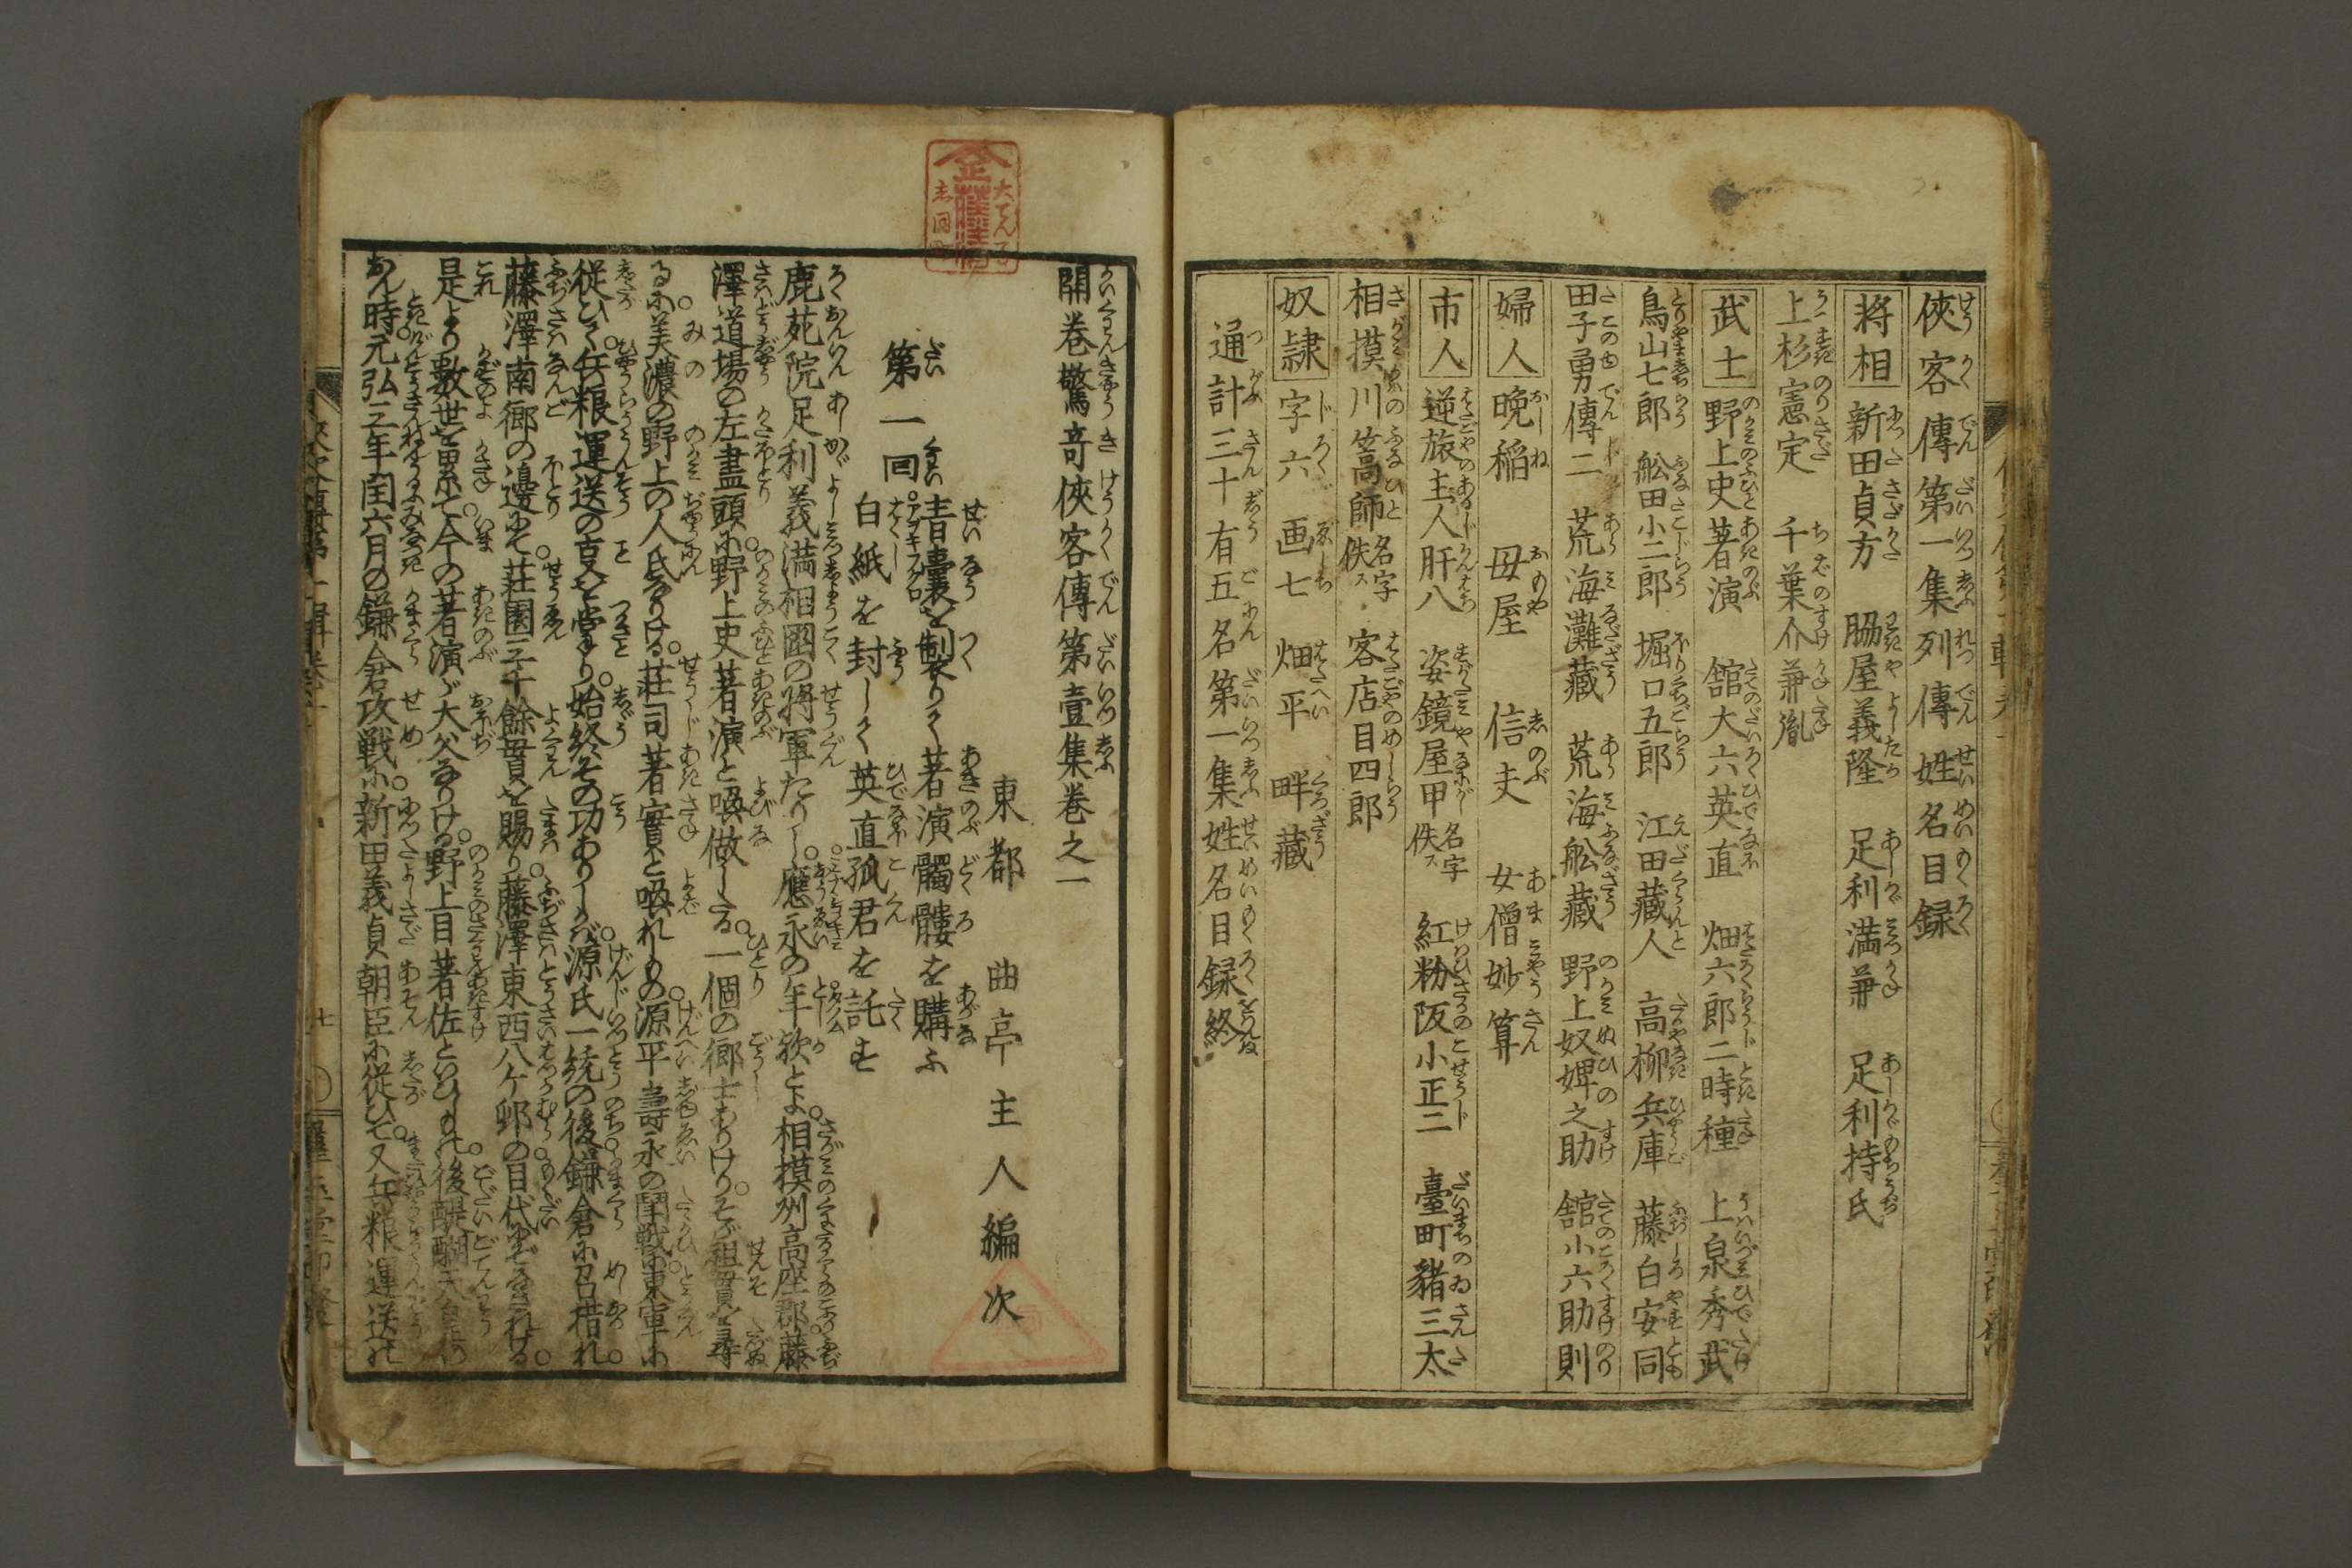 俠客傳第一集列傳姓名目録
将相 新田貞方 脇屋義隆 足利満兼 足利持氏
上杉憲定 千葉介兼胤
武士 野上史著演 舘大六英直 畑六郎二時種 上泉秀武
鳥山七郎 舩田小二郎 堀口五郎 江田藏人 高柳兵庫 藤白安同
田子勇傳二 荒海灘藏 荒海舩藏 野上奴婢之助 舘小六助則
婦人 晩稲 母屋 信夫 女僧妙算
市人 逆旅主人肝八 姿鏡屋甲名字佚ス 紅粉阪小正二 臺町豬三太
相摸川篙師名字佚ス 客店目四郎
奴隷 字六 画七 畑平 畔藏
通計三十有五名第一集姓名目録終
開巻驚奇俠客傳第壹集巻之一
東都 曲亭主人編次
第一回 青囊を製りて著演髑髏を購ふ
白紙を封して英直孤君を託す
鹿苑院足利義満相國の将軍たりし應永の年歟とよ相模州高座郡藤
澤道場の左盡頭に野上史著演と喚做したる一個の郷士ありけりそが祖貫を尋
るに美濃の野上の人氏なりける荘司著實と喚れしもの源平壽永の鬪戦に東軍に
従ひて兵粮運送の吏を掌り始終その功ありしかバ源氏一統の後鎌倉に召措れ
藤澤南郷の邊にて荘園三千餘貫を賜り藤澤東西八ケ邨の目代にぞなされける
是より數世を累て今の著演が大父なりける野上目著佐といひしもの後醍醐天皇の
おん時元弘三年閏六月の鎌倉攻戦に新田義貞朝臣に従ひて又兵粮運送の